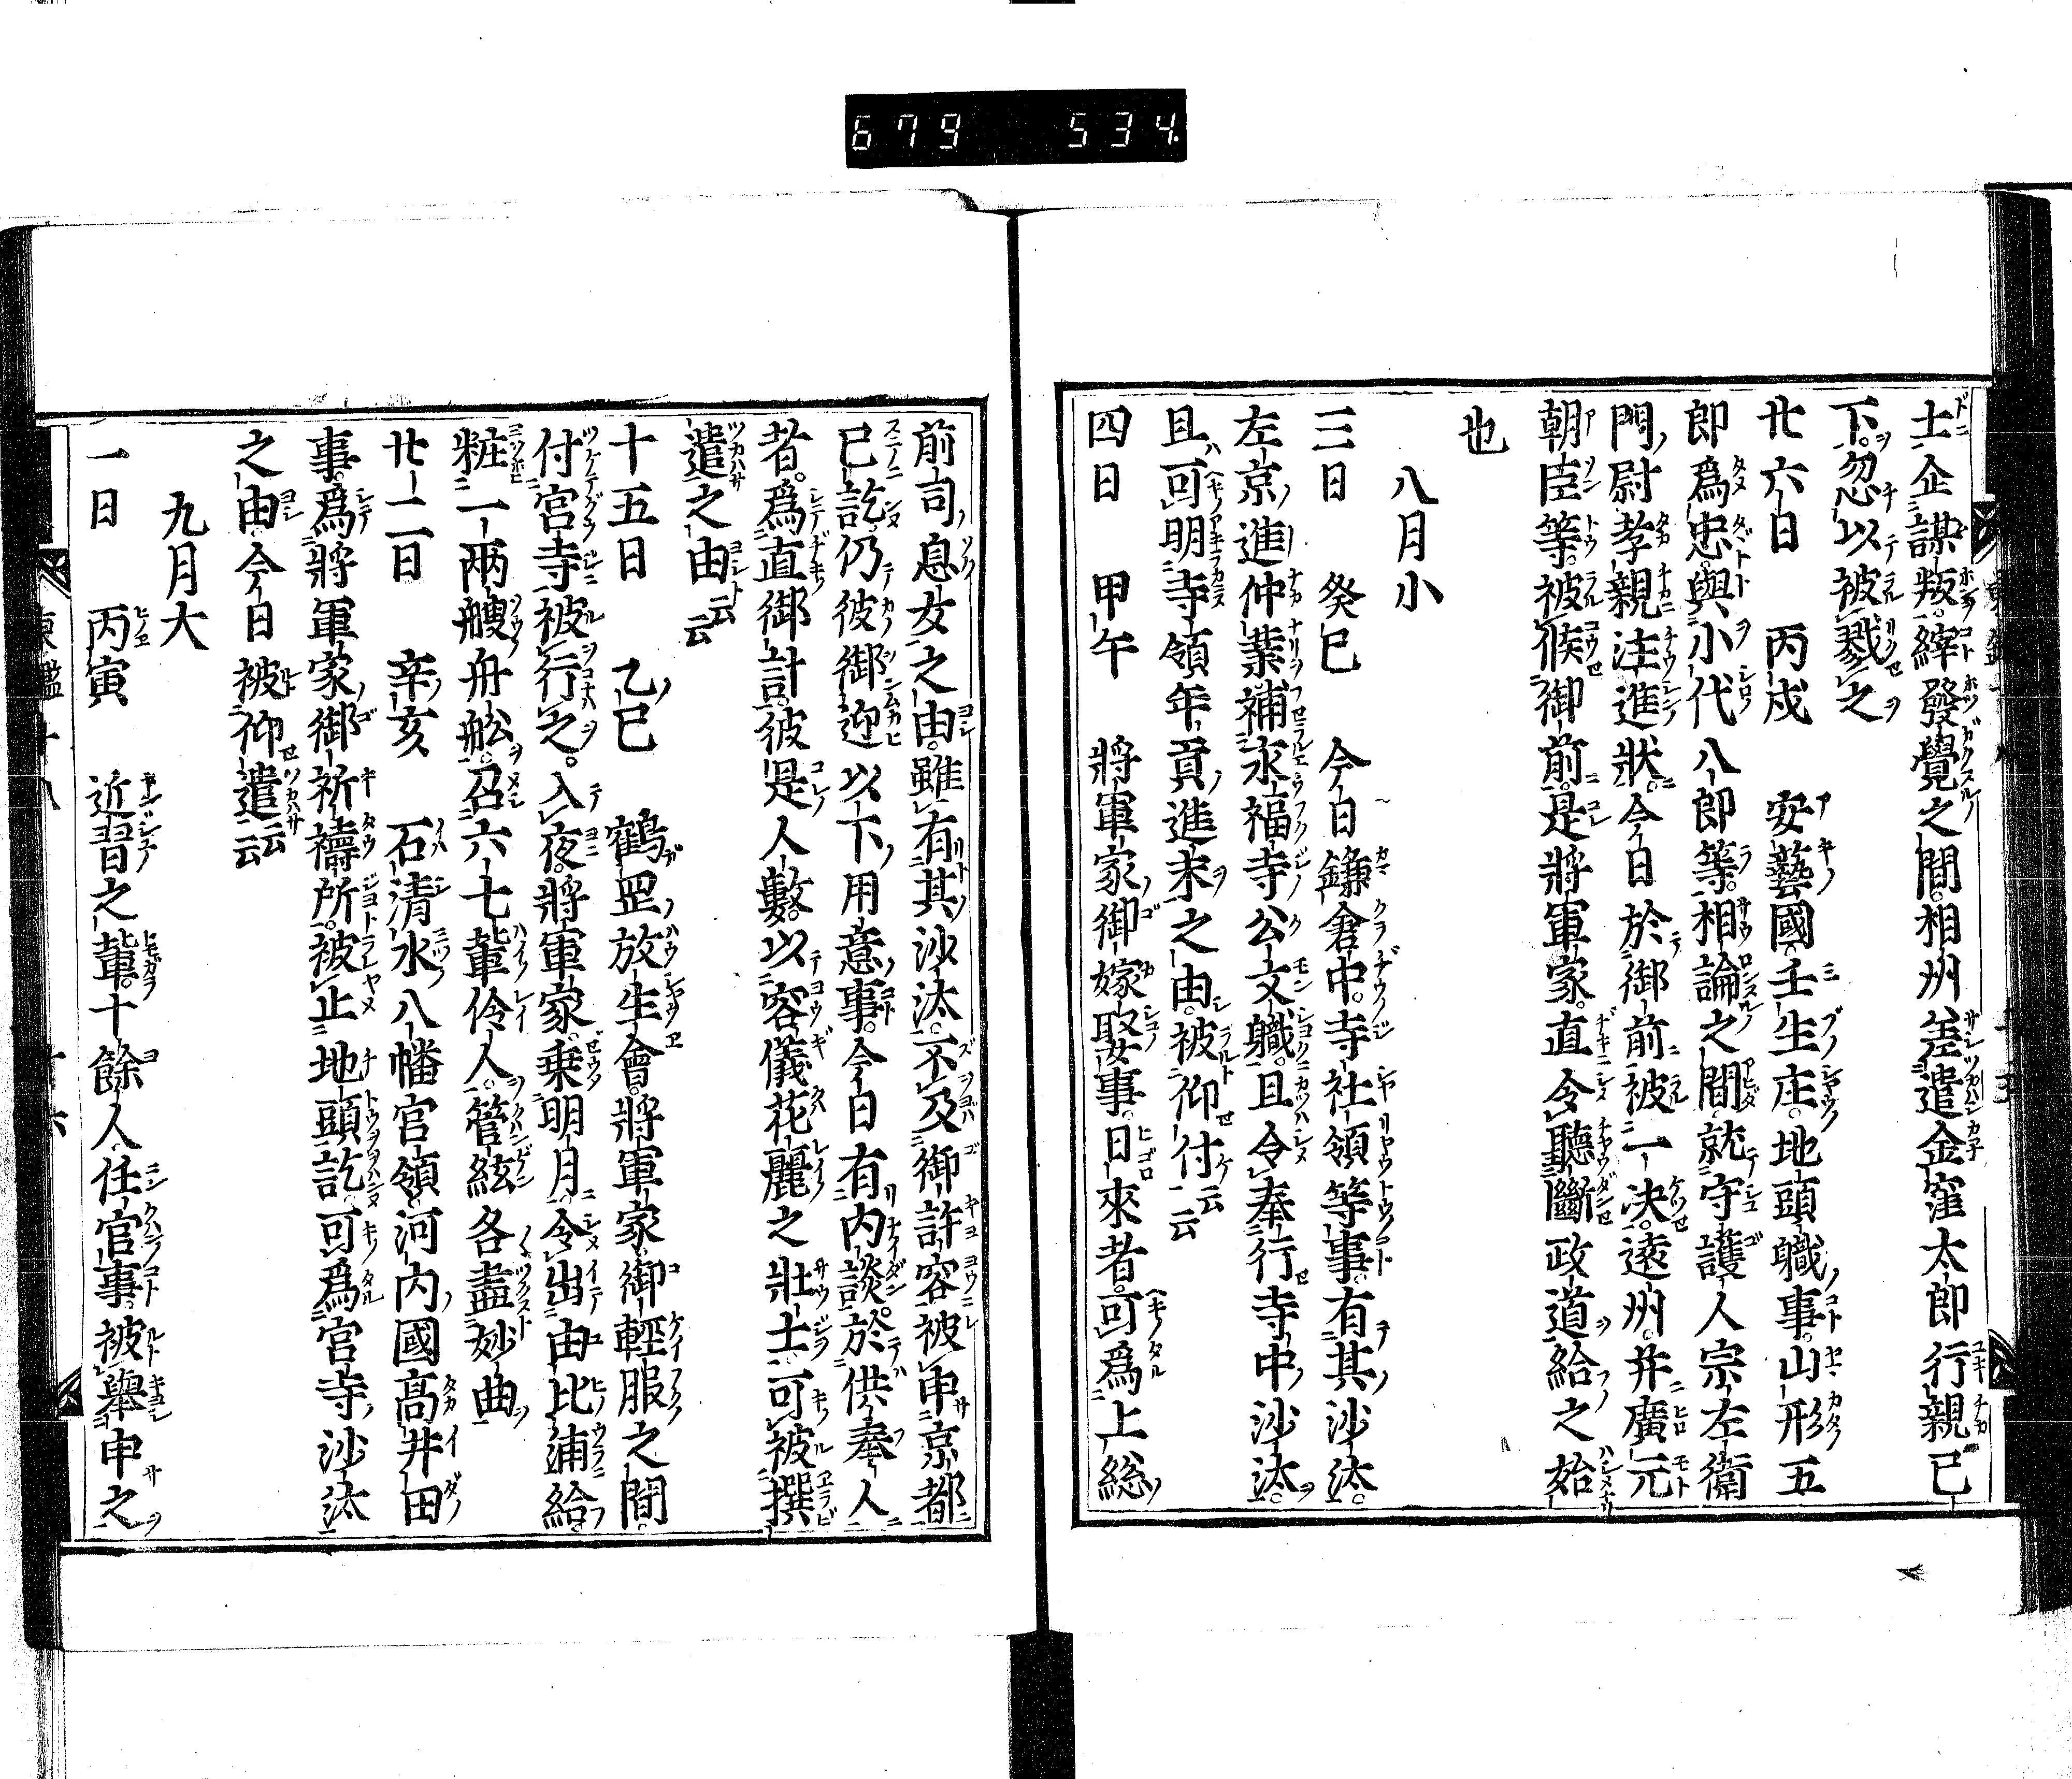 679 534.
士企謀叛。縡發覺之間。相州差遣金窪太郎行親已
下。忽以被戮之
廿六日 丙戌 安藝國壬生庄。地頭職事。山形五
郎爲忠。與小代八郎等。相論之間。就守護人宗左衛
門尉孝親注進狀。今日於御前被一决。遠州。并廣元
朝臣等。被候御前。是將軍家。直令聽斷政道給之始
也
八月小
三日 癸巳 今日鎌倉中。寺社領等事。有其沙汰。
左京進仲業補永福寺公文職。且令奉行寺中沙汰。
且可明寺領年貢進未之由。被仰付云云
四日 甲午 將軍家御嫁娶事。日來者。可爲上総
前司息女之由。雖有其沙汰。不及御許容被申京都
已訖。仍彼御迎以下用意事。今日有內談。於供奉人
者。爲直御計。彼是人數。以容儀花麗之壯士可被撰
遣之由云云
十五日 乙巳 鶴罡放生會。將軍家御輕服之間。
付宮寺被行之。入夜。將軍家。乗明月。令出由比浦給。
粧一兩艘舟舩。召六七輩伶人。管絃各盡妙曲
廿二日 辛亥 石清水八幡宮領。河內國高井田
事。爲將軍家御祈禱所。被止地頭訖。可爲宮寺沙汰
之由。今日被仰遣云云
九月大
一日 丙寅 近習之輩。十餘人。任官事。被舉申之